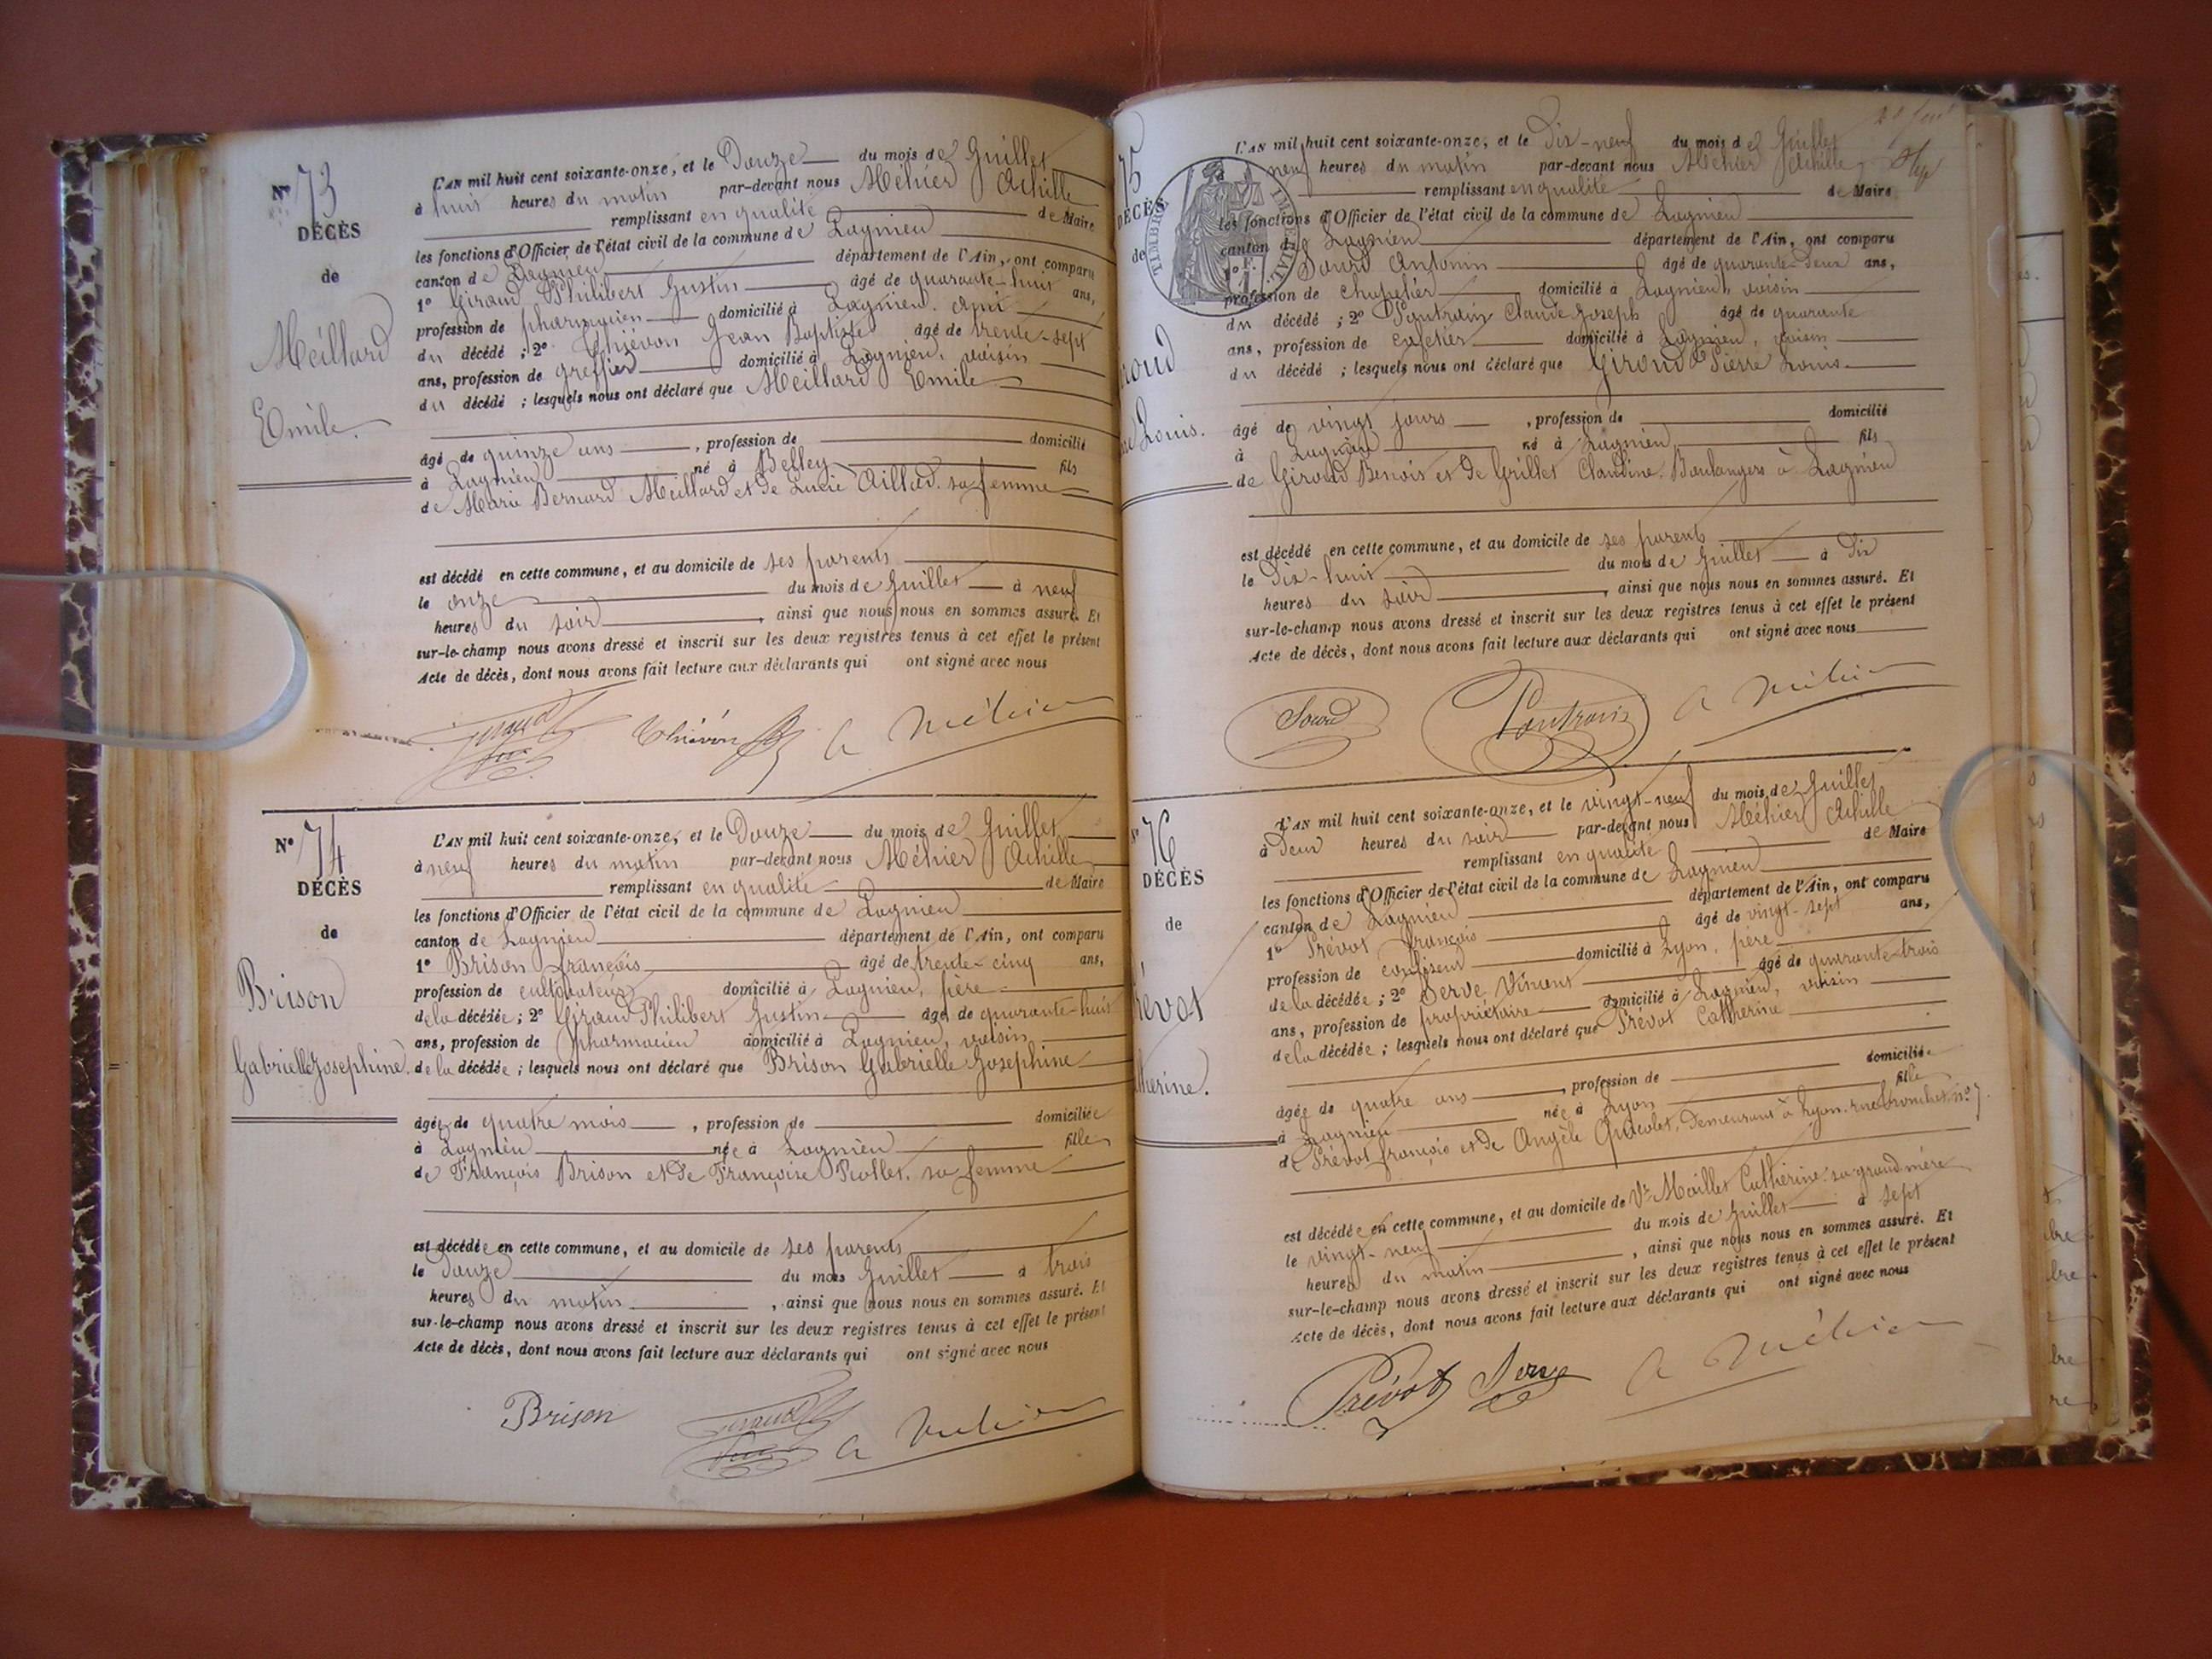 N° 73
DÉCÈS
de
Meillard
Emile.
L'AN mil huit cent soixante-onze, et le Douze du mois de Juillet
à huit heures du matin par-devant nous Méhier Achille
remplissant en qualité de Maire
les fonctions d'Officier de l'état civil de la commune de Lagnieu
canton de Lagnieu département de l'Ain, ont comparu
1° Giraud Philibert Justin âgé de quarante-huit ans,
profession de pharmacien domicilié à Lagnieu, ami
du décédé ; 2° Thiévon Jean Baptiste âgé de trente-sept
ans, profession de greffier domicilié à Lagnieu, voisin
du décédé ; lesquels nous ont déclaré que Meillard Emile
âgé de quinze ans, profession de domicilié
à Lagnieu né à Belley fils
de Marie Bernard Meillard et de Lucie Aillud, sa femme
est décédé en cette commune, et au domicile de ses parents
le onze du mois de Juillet à neuf
heures du soir, ainsi que nous nous en sommes assuré. Et
sur-le-champ nous avons dressé et inscrit sur les deux registres tenus à cet effet le présent
Acte de décès, dont nous avons fait lecture aux déclarants qui ont signé avec nous
Giraud Thiévon A Méhier
N° 74
DÉCÈS
de
Brison
Gabrielle Josephine.
L'AN mil huit cent soixante-onze, et le Douze du mois de Juillet
à neuf heures du matin par-devant nous Méhier Achille
remplissant en qualité de Maire
les fonctions d'Officier de l'état civil de la commune de Lagnieu
canton de Lagnieu département de l'Ain, ont comparu
1° Brison François âgé de trente-cinq ans,
profession de cultivateur domicilié à Lagnieu, père
de la décédée ; 2° Giraud Philibert Justin âgé de quarante-huit
ans, profession de pharmacien domicilié à Lagnieu, voisin
de la décédée ; lesquels nous ont déclaré que Brison Gabrielle Josephine
âgée de quatre mois, profession de domiciliée
à Lagnieu née à Lagnieu fille
de François Brison et de Françoise Piollet, sa femme
est décédée en cette commune, et au domicile de ses parents
le Douze du mois Juillet à trois
heures du matin, ainsi que nous nous en sommes assuré. Et
sur-le-champ nous avons dressé et inscrit sur les deux registres tenus à cet effet le présent
Acte de décès, dont nous avons fait lecture aux déclarants qui ont signé avec nous
Brison Giraud A Méhier
5
DÉCÈS
de
roud
Louis.
TIMBRE IMPERIAL
L'AN mil huit cent soixante-onze, et le Dix-neuf du mois de Juillet
neuf heures du matin par-devant nous Méhier Achille
remplissant en qualité de Maire
les fonctions d'Officier de l'état civil de la commune de Lagnieu
canton de Lagnieu département de l'Ain, ont comparu
1° Sourd Antonin âgé de quarante-deux ans,
profession de chapelier domicilié à Lagnieu, voisin
du décédé ; 2° Pontrain Claude Joseph âgé de quarante
ans, profession de cafetier domicilié à Lagnieu, voisin
du décédé ; lesquels nous ont déclaré que Giroud Pierre Louis
âgé de vingt jours, profession de domicilié
à Lagnieu né à Lagnieu fils
de Giroud Benoit et de Grillet Claudine, Boulangers à Lagnieu
est décédé en cette commune, et au domicile de ses parents
le Dix-huit du mois de Juillet à Dix
heures du soir, ainsi que nous nous en sommes assuré. Et
sur-le-champ nous avons dressé et inscrit sur les deux registres tenus à cet effet le présent
Acte de décès, dont nous avons fait lecture aux déclarants qui ont signé avec nous
Sourd Pontrain A Méhier
76
DÉCÈS
de
révot
therine.
L'AN mil huit cent soixante-onze, et le vingt-neuf du mois de Juillet
à Deux heures du soir par-devant nous Méhier Achille
remplissant en qualité de Maire
les fonctions d'Officier de l'état civil de la commune de Lagnieu
canton de Lagnieu département de l'Ain, ont comparu
1° Prévot François âgé de vingt-sept ans,
profession de confiseur domicilié à Lyon, père
de la décédée ; 2° Serve Vincent âgé de quarante-trois
ans, profession de propriétaire domicilié à Lagnieu, voisin
de la décédée ; lesquels nous ont déclaré que Prévot Catherine
âgée de quatre ans, profession de domiciliée
à Lagnieu née à Lyon fille
de Prévot François et de Angèle Demeurant à Lyon, rue n° 7.
est décédée en cette commune, et au domicile de Ve Maillet Catherine sa grand'mère
le vingt-neuf du mois de Juillet à sept
heures du matin, ainsi que nous nous en sommes assuré. Et
sur-le-champ nous avons dressé et inscrit sur les deux registres tenus à cet effet le présent
Acte de décès, dont nous avons fait lecture aux déclarants qui ont signé avec nous
Prévot Serve A Méhier